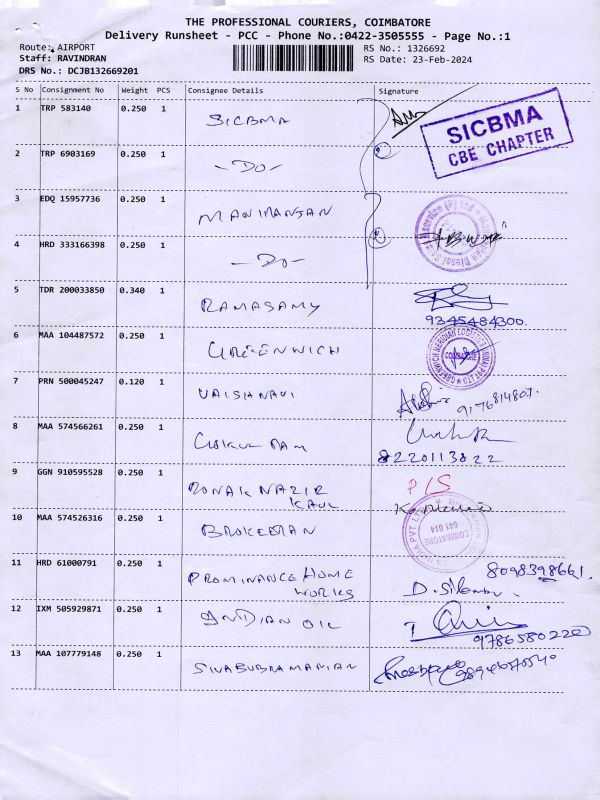 THE PROFESSIONAL COURIERS, COIMBATORE
Delivery Runsheet - PCC - Phone No.:0422-3505555 - Page No.:1
Route: AIRPORT
RS No.: 1326692
Staff: RAVINDRAN
RS Date: 23-Feb-2024
DRS No.: DCJB132669201
S No Consignment No Weight PCS Consignee Details Signature
1 TRP 583140 0.250 1 SICBMA
SICBMA
CBE CHAPTER
2 TRP 6903169 0.250 1 -DO-
3 EDQ 15957736 0.250 1 MANIMANJAN
4 HRD 333166398 0.250 1 -DO-
5 TDR 200033850 0.340 1 RAMASAMY
9345484300.
6 MAA 104487572 0.250 1 GREENWICH
GREENWICH MERIDIAN LOGISTICS INDIA PVT LTD
COIMBATORE
7 PRN 500045247 0.120 1 VAISHNAVI
9176814807.
8 MAA 574566261 0.250 1 GOKUL RAM
8220113822
9 GGN 910595528 0.250 1 RONAK NAZIR
KAUL
P/S
10 MAA 574526316 0.250 1
COIMBATORE
641 014
11 HRD 61000791 0.250 1 PROMINANCE HOME
WORKS
8098398661.
12 IXM 505929871 0.250 1 INDIAN OIL
9786580220
13 MAA 107779148 0.250 1 SIVABUBRAMANIAN